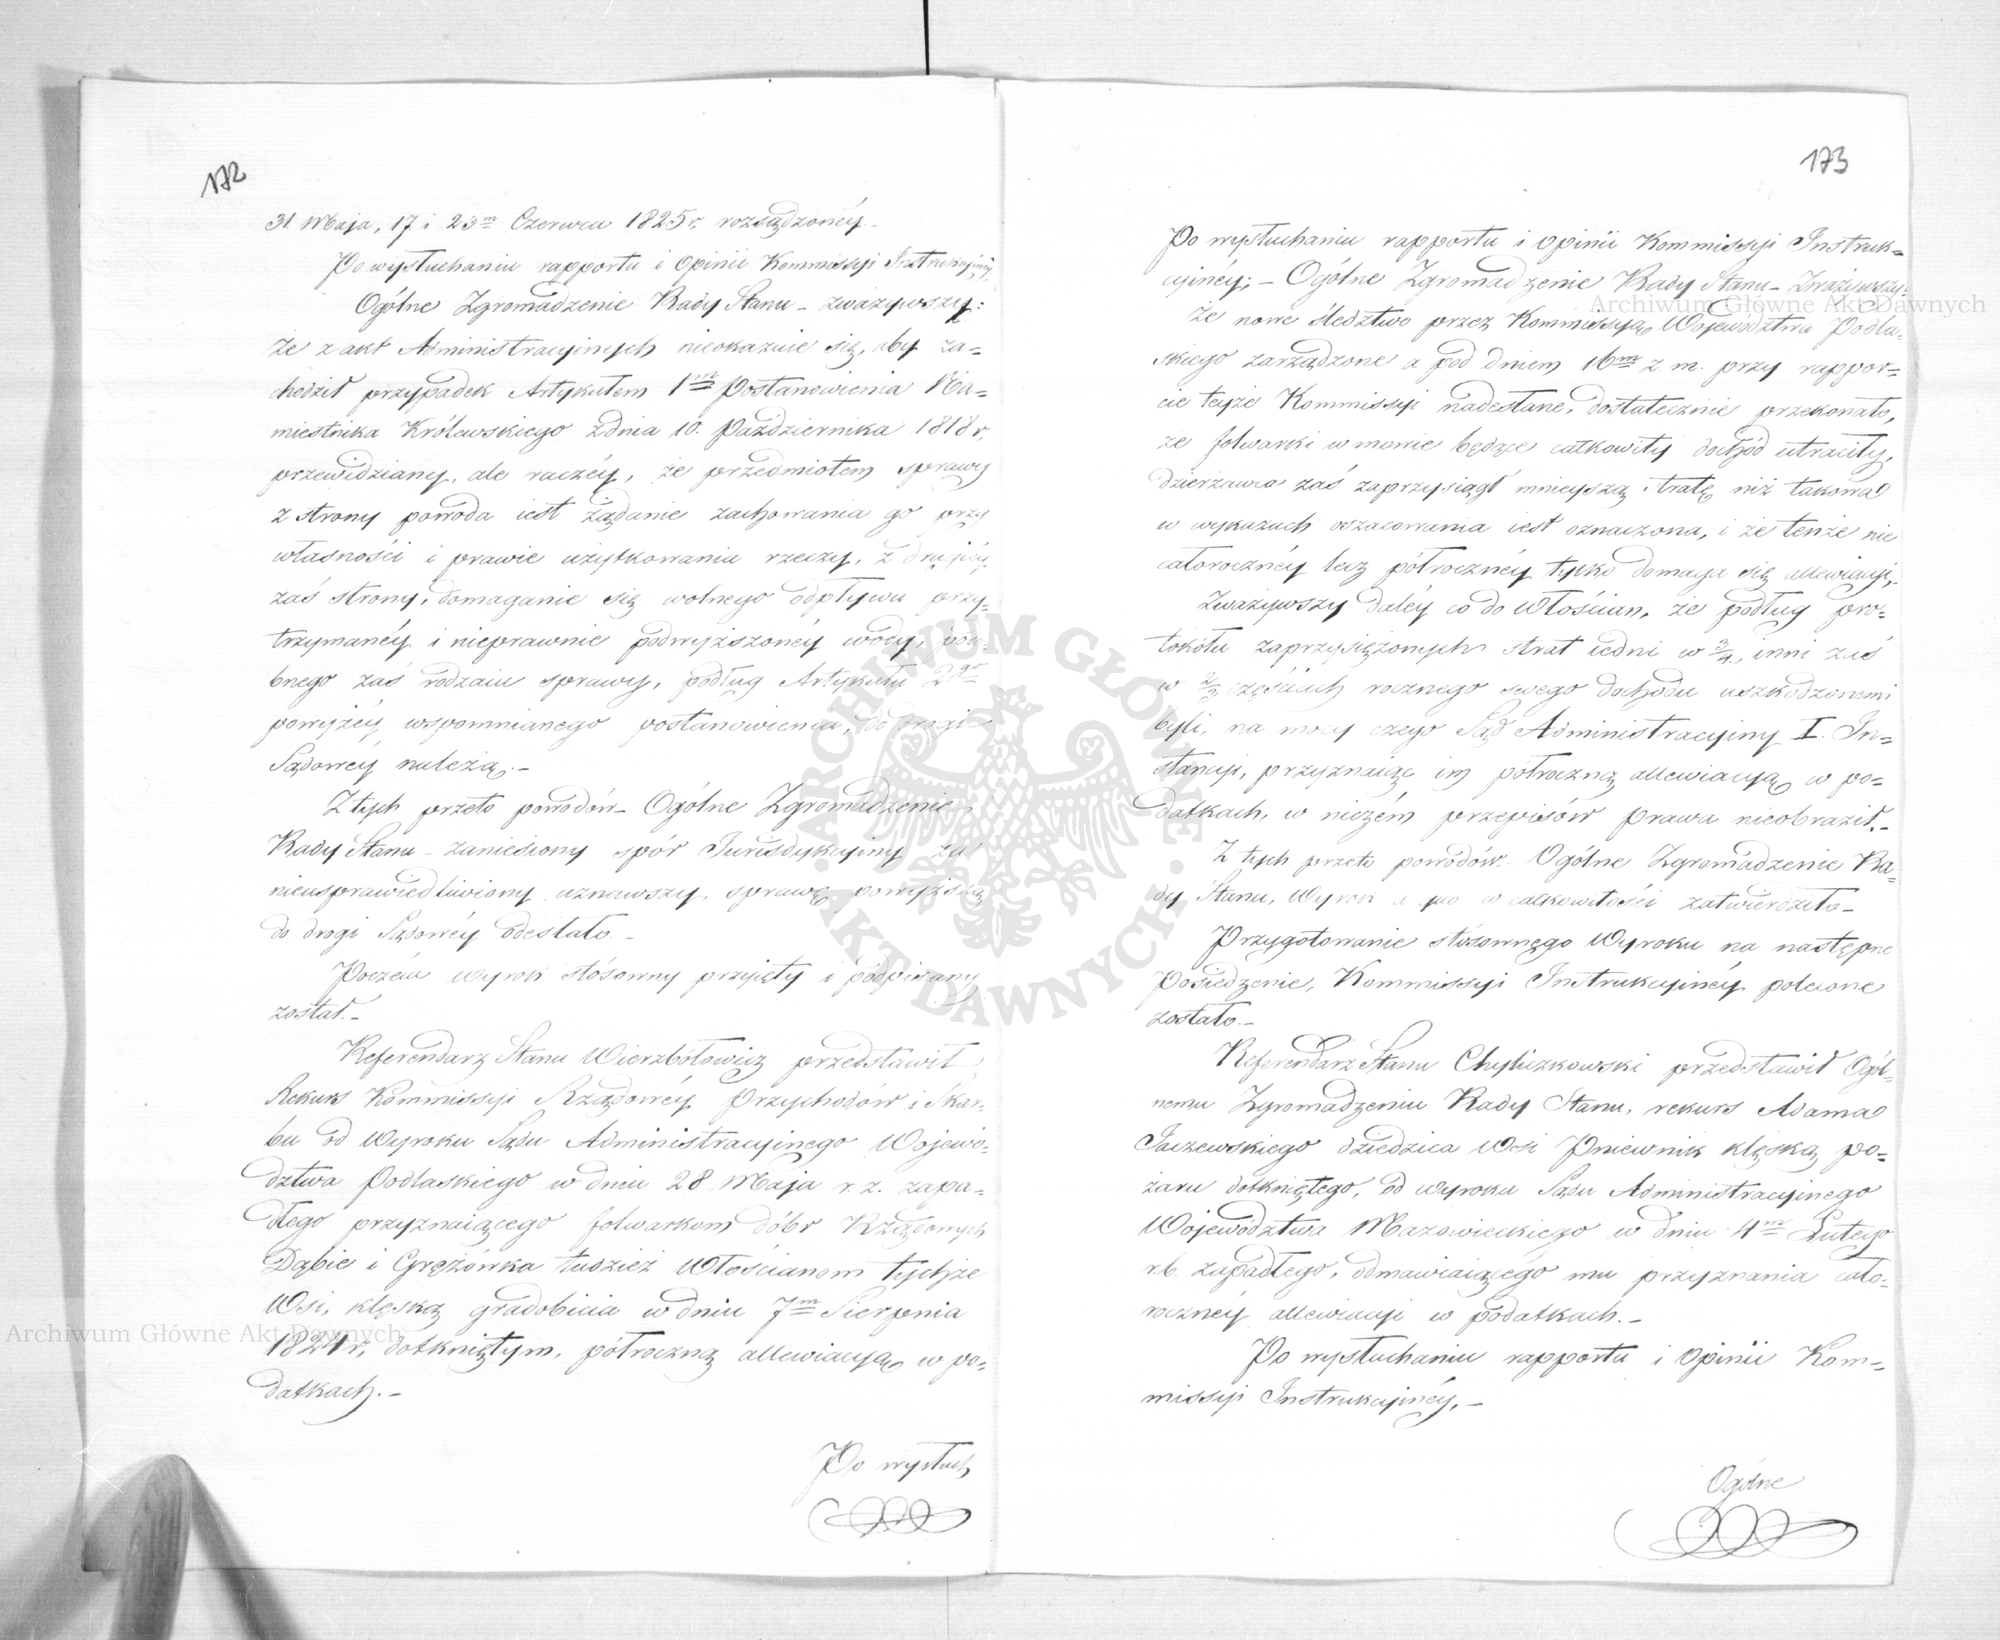 172
31 Maja, 17 i 23m Czerwca 1825 r. rozsądzonéy.
Po wysłuchaniu rapportu i Opinii Kommissyi Instrukcyinéy
Ogólne Zgromadzenie Rady Stanu – zważywszy:
Że z akt Administracyinych nieokazuie się, aby za=
chodził przypadek Artykułem 1m Postanowienia Na=
miestnika Królewskiego z dnia 10. Października 1818 r.
przewidziany, ale raczéy, że przedmiotem sprawy
z strony powoda iest żądanie zachowania go przy
własności i prawie użytkowania rzeczy, z drugiéy
zaś strony, domaganie się wolnego odpływu przy=
trzymanéy i nieprawnie podwyższonéy wody, podo=
bnego zaś rodzaiu sprawy, podług Artykułu 2go
powyżéy wspomnianego postanowienia, do drogi
Sądowéy należą. –
Z tych przeto powodów – Ogólne Zgromadzenie
Rady Stanu – zaniesiony spór Jurisdykcyiny za
nieusprawiedliwiony uznawszy, sprawę powyższą
do drogi Sądowéy odesłało –
Poczém wyrok stósowny przyięty i podpisany
został. –
Referendarz Stanu Wierzbołowicz przedstawił
Rekurs Kommissyi Rządowéy Przychodów i Skar=
bu od Wyroku Sądu Administracyinego Wojewó=
dztwa Podlaskiego w dniu 28 Maja r. z. zapa=
dłego przyznaiącego folwarkom dóbr Rządowych
Dąbie i Gręzówka tudzież Włościanom tychże
Wsi, klęską gradobicia w dniu 7m Sierpnia
1824 r. dotkniętym, półroczną allewiacyą w po=
datkach. –
Po wysłuch
173
Po wysłuchaniu rapportu i opinii Kommissyi Instruk=
cyinéy; – Ogólne Zgromadzenie Rady Stanu – Zważywszy:
Że nowe śledztwo przez Kommissyą Województwa Podla=
skiego zarządzone a pod dniem 16m z. m. przy rappor=
cie teyże Kommissyi nadesłane, dostatecznie przekonało,
że folwarki w mowie będące całkowity dochód utraciły,
dzierżawca zaś zaprzysiągł mnieyszą stratę niż takowa
w wykazach oszacowania iest oznaczona, i że tenże nie
całorocznéy lecz półrocznéy tylko domaga się allewiacyi,
Zważywszy daléy co do Włościan, że podług pro=
tokółu zaprzysiężonych strat iedni w 3/4, inni zaś
w 2/3 częściach rocznego swego dochodu uszkodzonemi
byli, na mocy czego Sąd Administracyiny I. In=
stancyi, przyznaiąc im półroczną allewiacyą w po=
datkach, w niczém przepisów prawa nieobraził. –
Z tych przeto powodów – Ogólne Zgromadzenie Ra=
dy Stanu, Wyrok w całkowitości zatwierdziło –
Przygotowanie stósownego Wyroku na następne
Posiedzenie, Kommissyi Instrukcyinéy polecone
zostało. –
Referendarz Stanu Chyliczkowski przedstawił Ogól=
nemu Zgromadzeniu Rady Stanu, rekurs Adama
Jaczewskiego dziedzica Wsi Pniewnik klęską po=
żaru dotkniętego, od wyroku Sądu Administracyinego
Województwa Mazowieckiego w dniu 4m Lutego
r.b. zapadłego, odmawiaiącego mu przyznania cało=
rocznéy allewiacyi w podatkach. –
Po wysłuchaniu rapportu i Opinii Kom=
missyi Instrukcyinéy, –
Ogólne
Archiwum Główne Akt Dawnych
Archiwum Główne Akt Dawnych
ARCHIWUM GŁÓWNE
AKT DAWNYCH